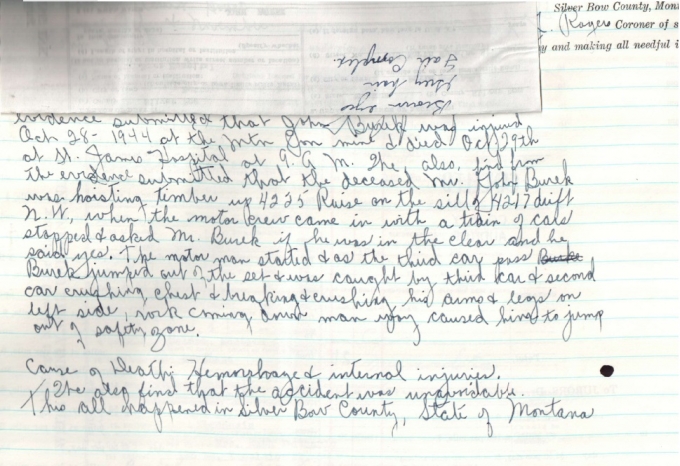 Silver Bow County, Mon
Rogers Coroner of s
y and making all needful i
Brown eyes
Grey hair
Fair Complex.
evidence submitted that John Burek was injured
Oct 28 - 1944 at the Mtn Con mine & died Oct 29th
at St. James Hospital at A. M. We, also, find from
the evidence submitted that the deceased Mr. John Burek
was hoisting timber up 4225 Raise on the sill of 4217 drift
N. W., when the motor crew came in with a train of cars
stopped & asked Mr. Burek if he was in the clear and he
said yes. The motor man started & as the third car pass
Burek jumped out of the set & was caught by third car & second
car crushing chest & breaking & crushing his arms & legs on
left side, rock coming down man way caused him to jump
out of safety zone.
Cause of Death: Hemorrhage & internal injuries.
We also find that the accident was unavoidable.
This all happened in Silver Bow County, State of Montana